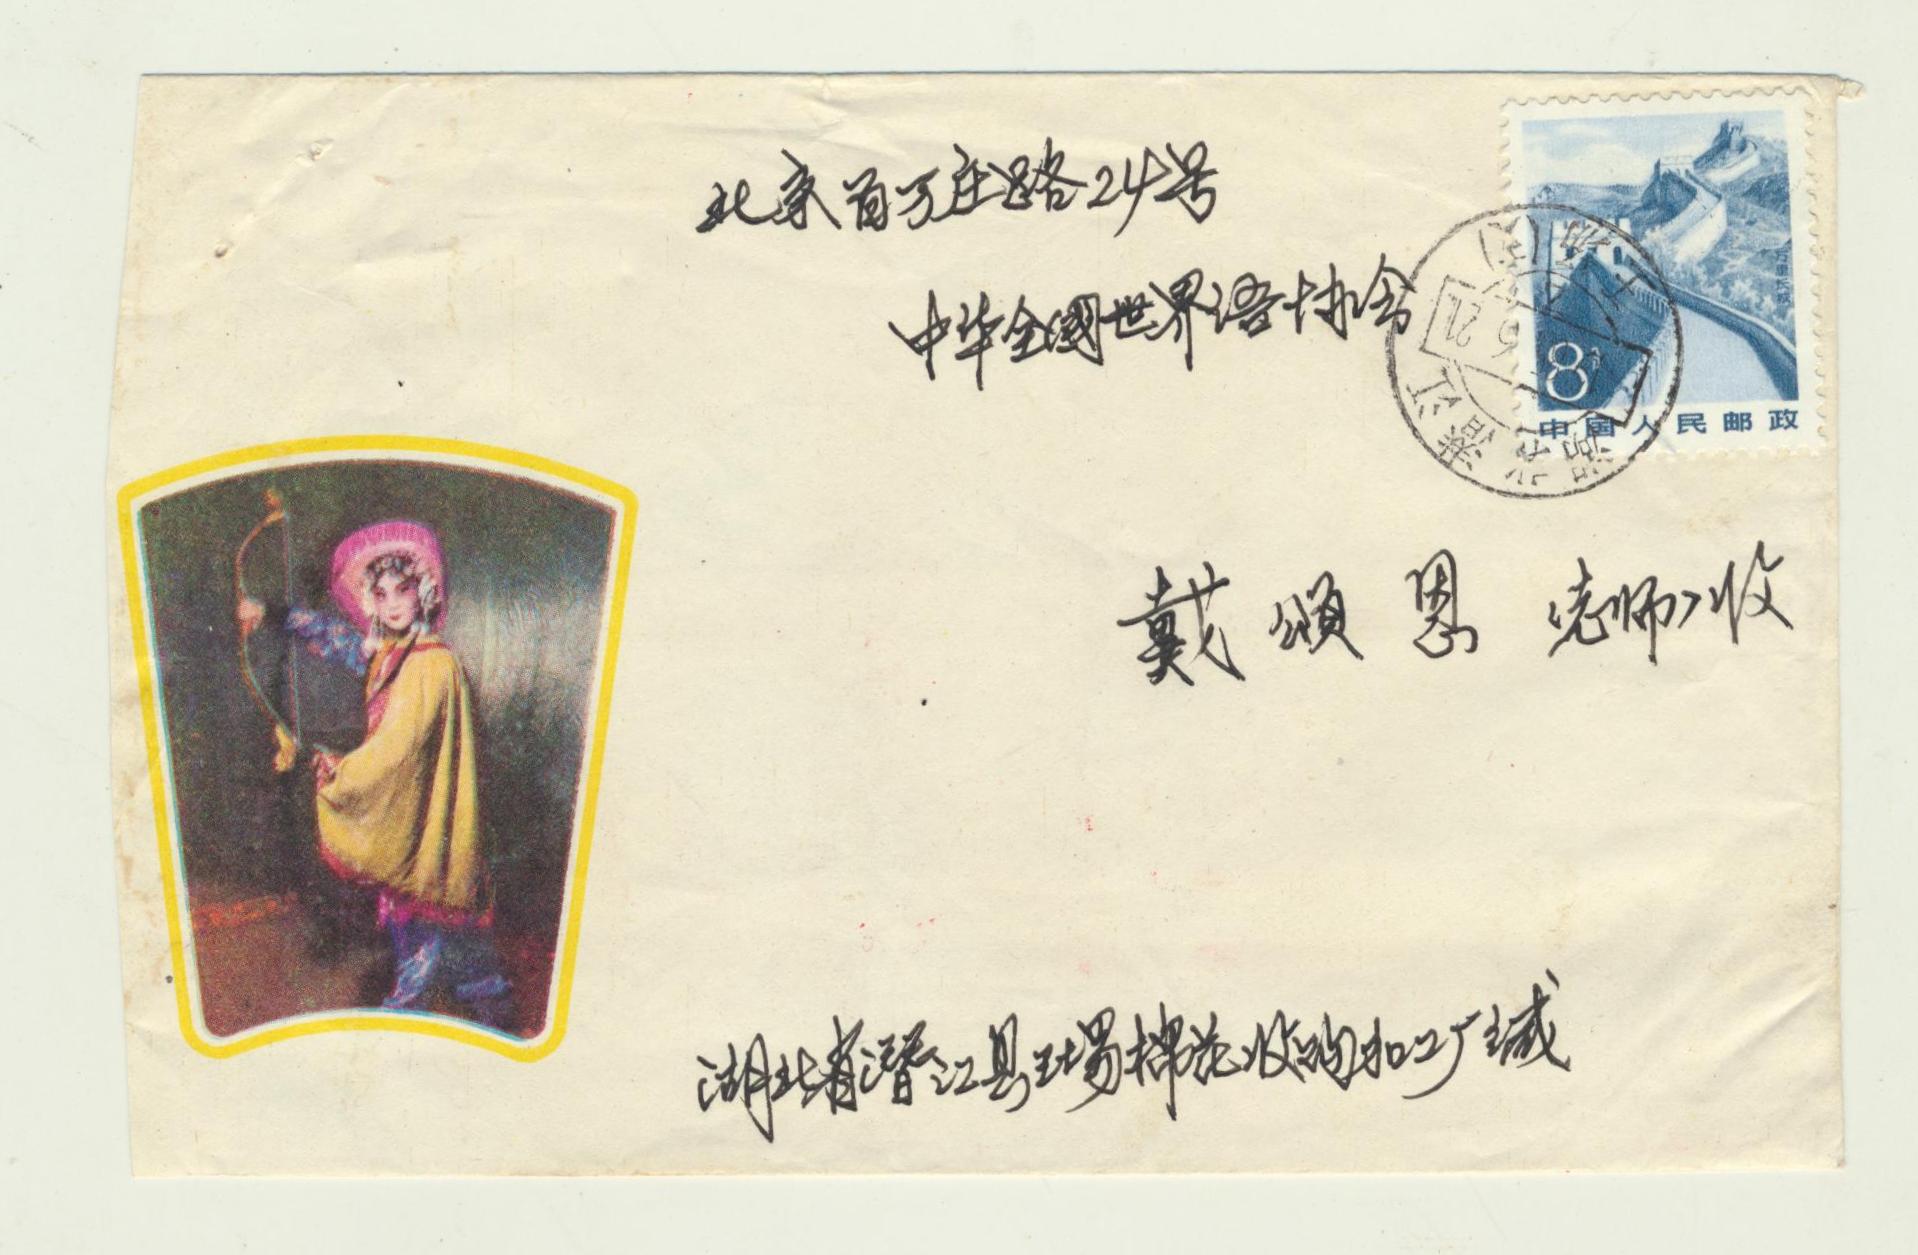 北京百万庄路24号
中华全國世界语协会
万里长城
8分
中国人民邮政
湖北潜江
21
戴頌恩 老师 收
湖北省潜江县王场棉花收购加工厂缄